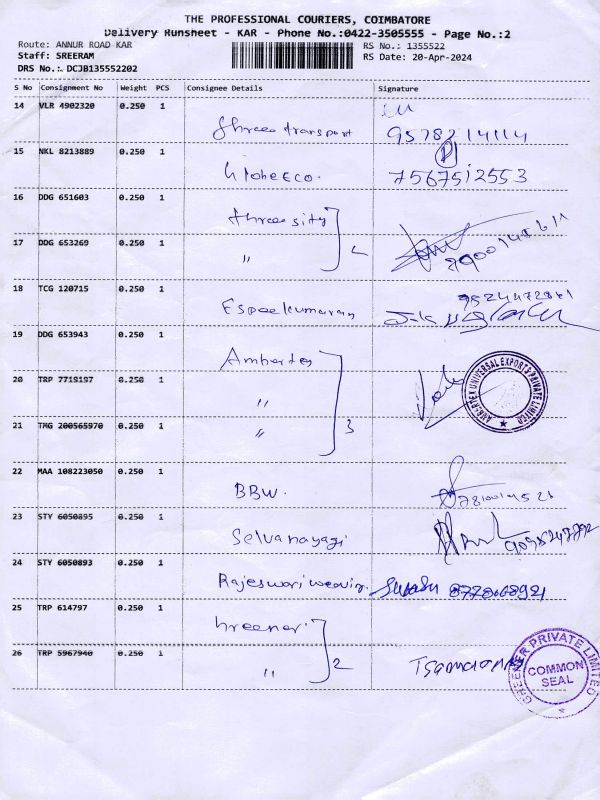 THE PROFESSIONAL COURIERS, COIMBATORE
Delivery Runsheet - KAR - Phone No.:0422-3505555 - Page No.:2
Route: ANNUR ROAD KAR RS No.: 1355522
Staff: SREERAM RS Date: 20-Apr-2024
DRS No.: DCJB135552202
S No Consignment No Weight PCS Consignee Details Signature
14 VLR 4902320 0.250 1
Shree transport 9578214114
15 NKL 8213889 0.250 1
GlobeEco. 7567512553
16 DDG 651603 0.250 1
17 DDG 653269 0.250 1
" 2
18 TCG 120715 0.250 1
Espeekumaran
19 DDG 653943 0.250 1
20 TRP 7719197 0.250 1
"
21 TMG 200565970 0.250 1
" 3
22 MAA 108223050 0.250 1
BBW.
23 STY 6050895 0.250 1
Selvanayagi
24 STY 6050893 0.250 1
Rajeswari weaving.
25 TRP 614797 0.250 1
Greener.
26 TRP 5967940 0.250 1
" 2
UNIVERSAL EXPORTS PRIVATE LIMITED
GREENER PRIVATE LIMITED
COMMON
SEAL